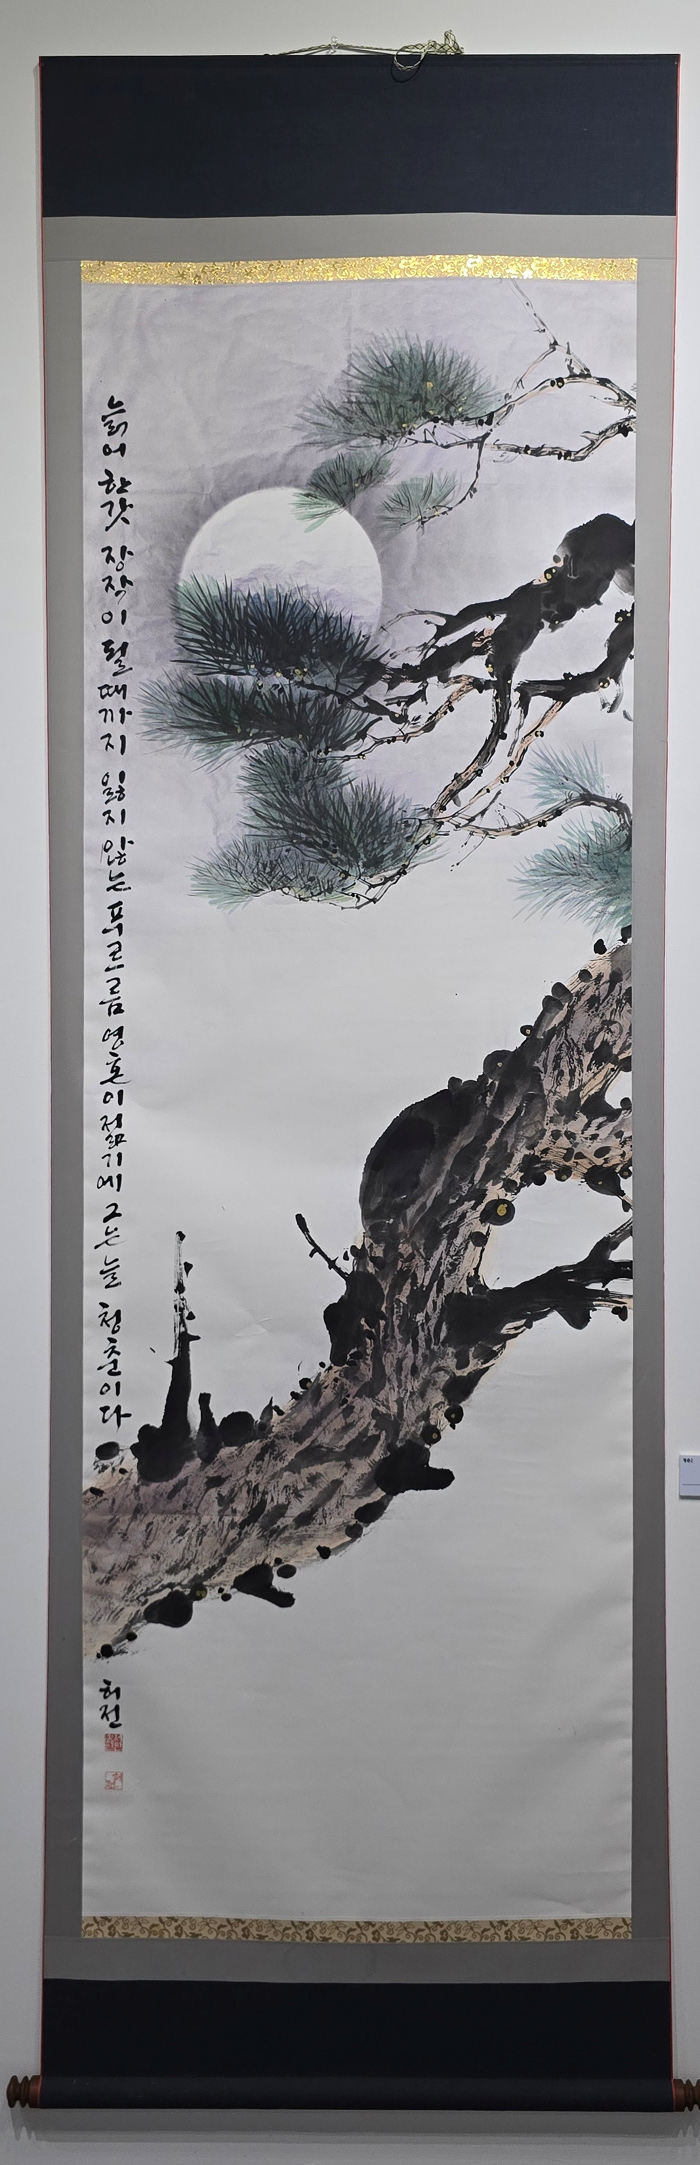 늙어 한갓 장작이 될 때까지 잃지 않는 푸르름 영혼이 젊기에 그는 늘 청춘이다
허전